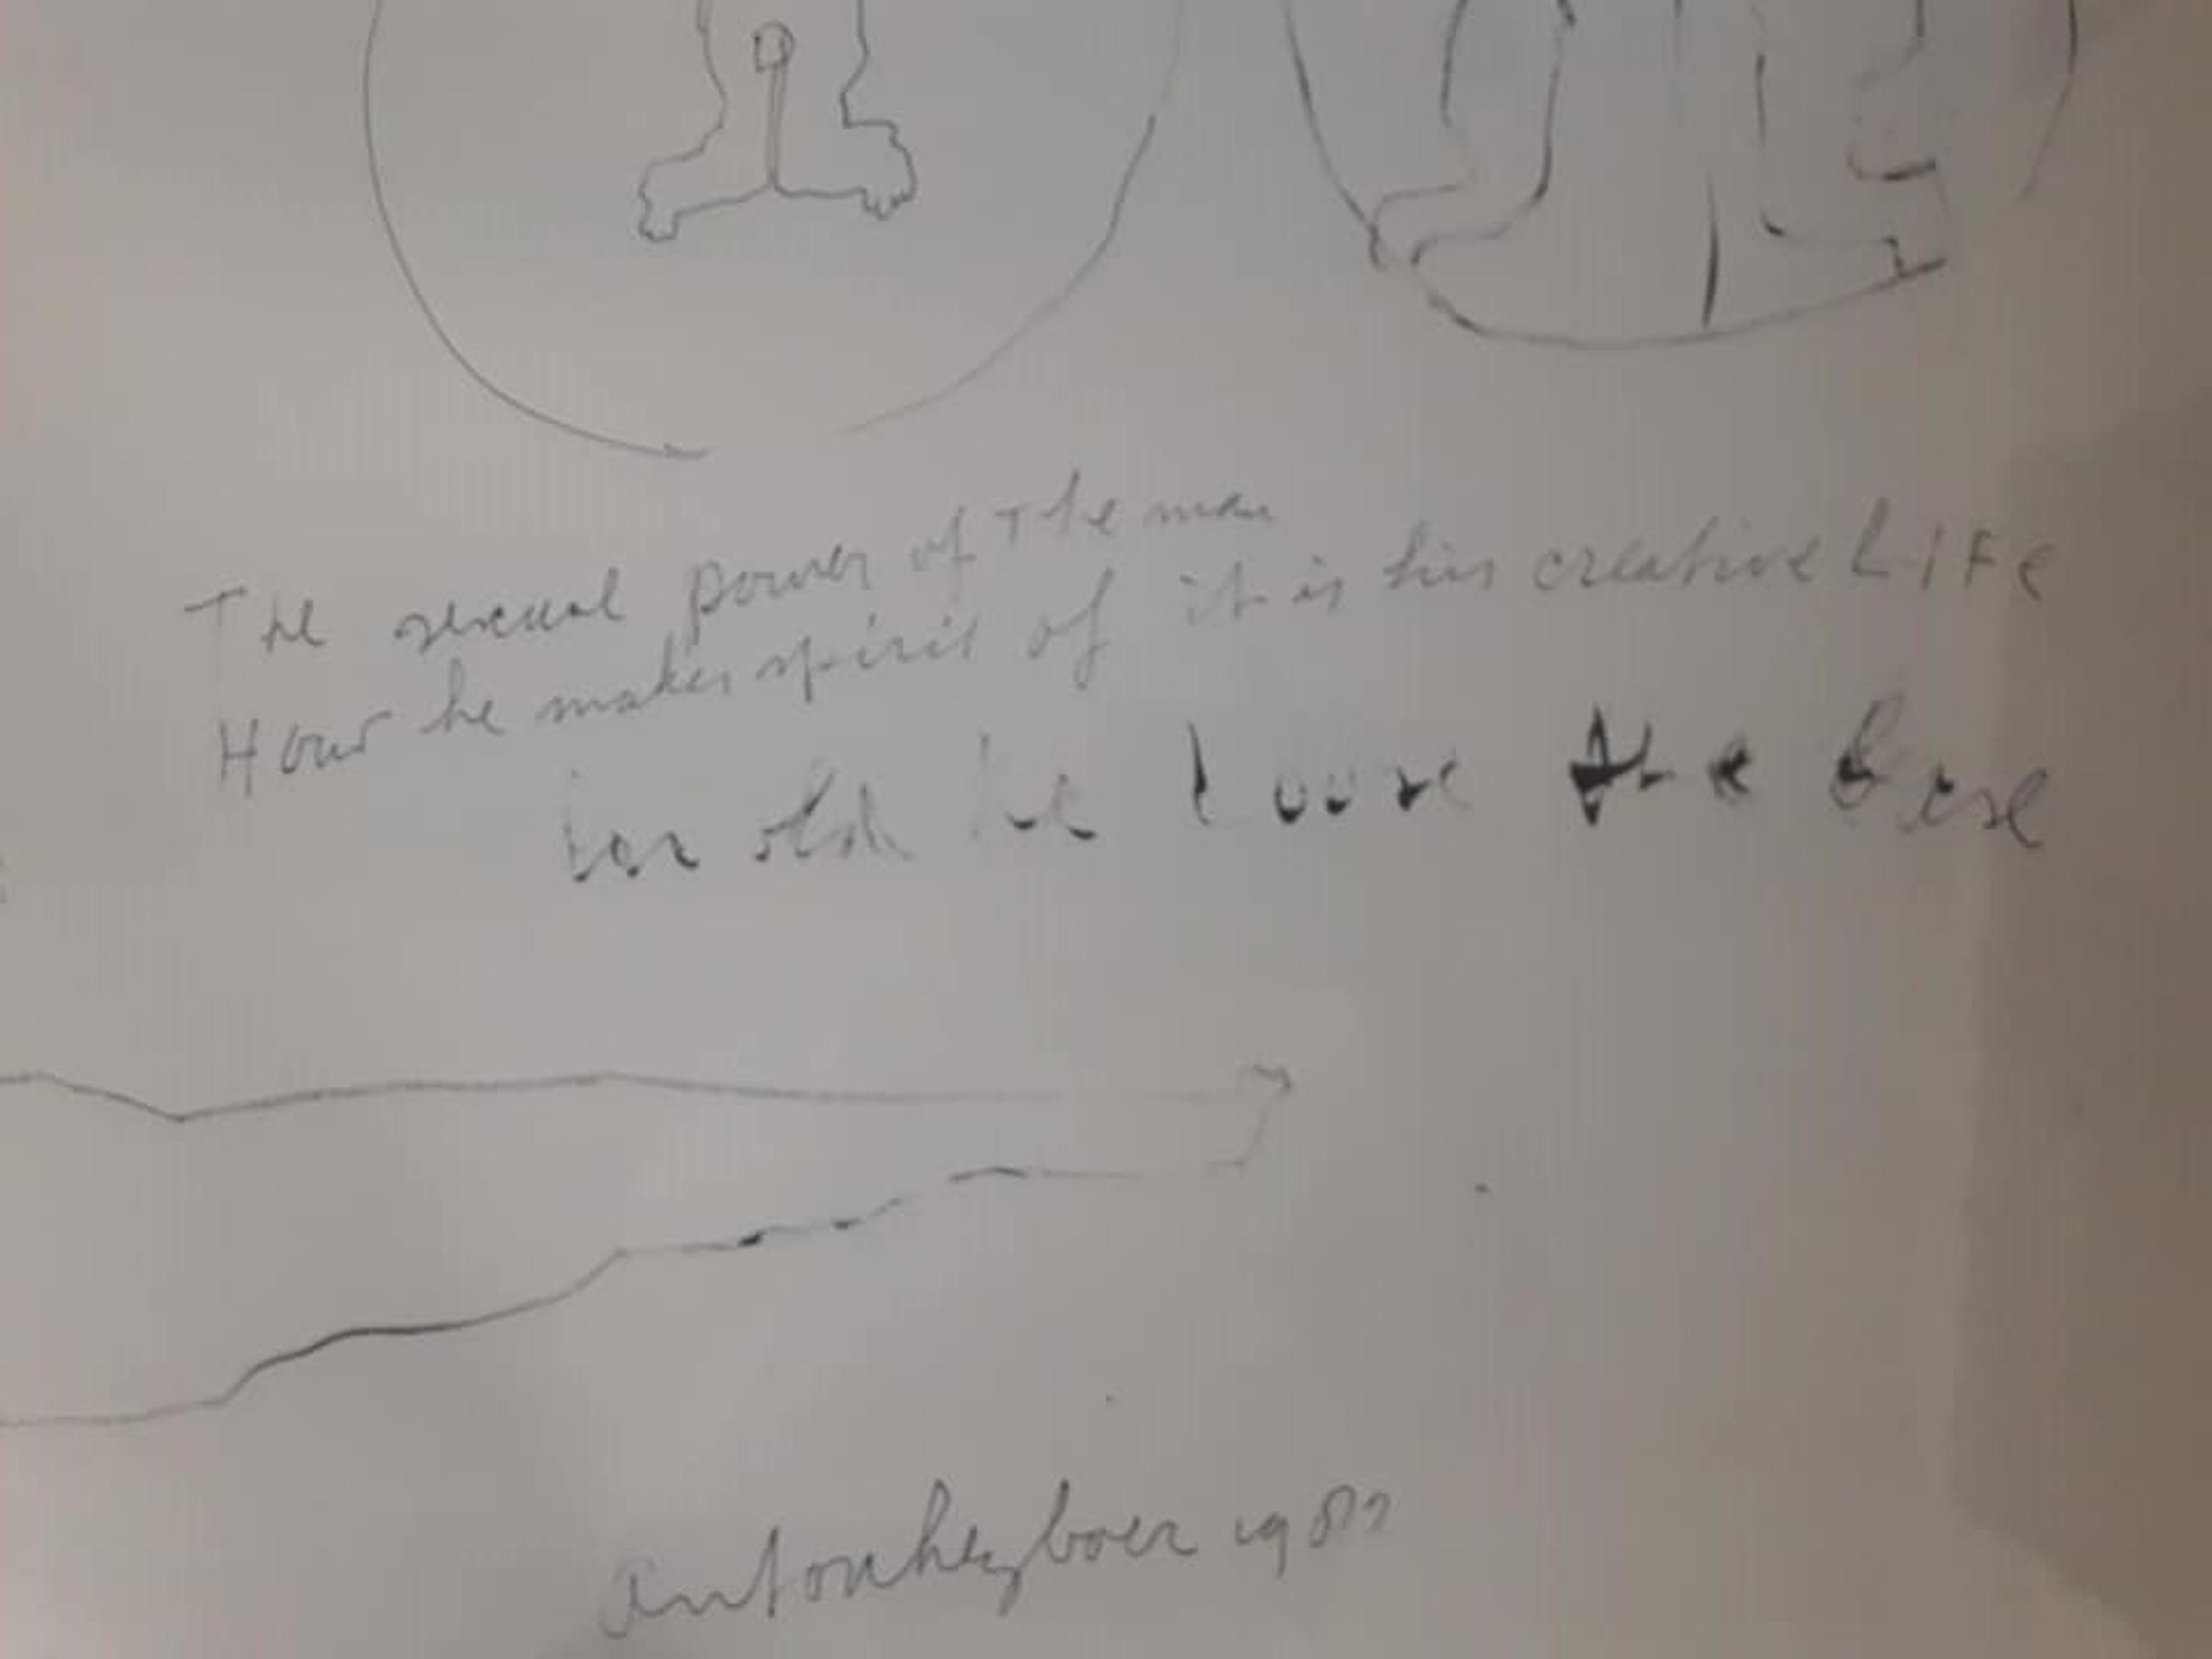 The sexual power of The man
How he makes spirit of it is his creative LIFE
old he loose the base
antonheyboer 1982